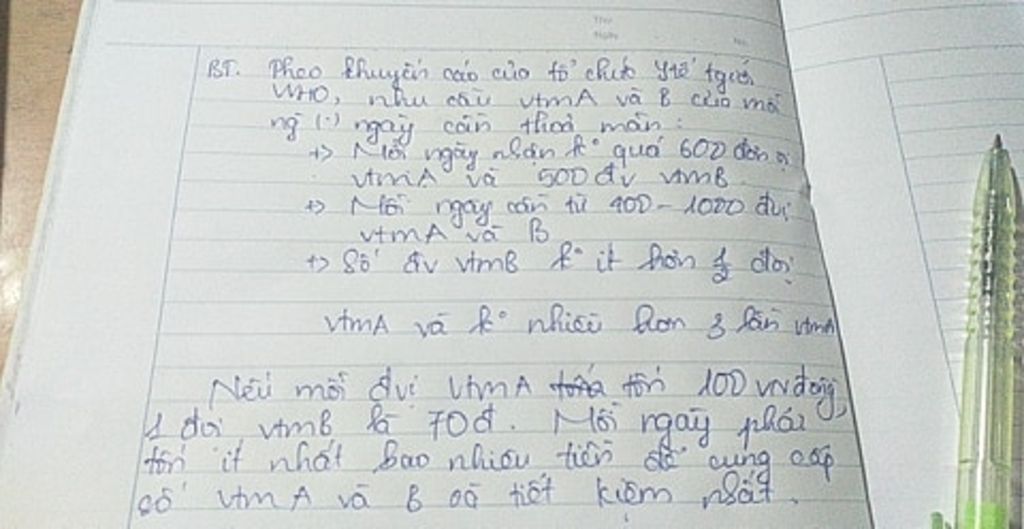 Thứ
Ngày
No.
BT. Theo khuyến cáo của tổ chức y tế tgiới
WHO, nhu cầu vtmA và B của mỗi
ng (.) ngày cần thoả mãn :
+> Mỗi ngày nhận k° quá 600 đơn vị
vtmA và 500 đv vtmB
+> Mỗi ngày cần từ 400 - 1000 đvị
vtmA và B
+> Số đv vtmB k° ít hơn 1/2 đvị
vtmA và k° nhiều hơn 3 lần vtmA
Nếu mỗi đvị vtmA tốn 100 vnđồng,
1 đvị vtmB là 70đ. Mỗi ngày phải
tốn ít nhất bao nhiêu tiền để cung cấp
số vtm A và B mà tiết kiệm nhất.